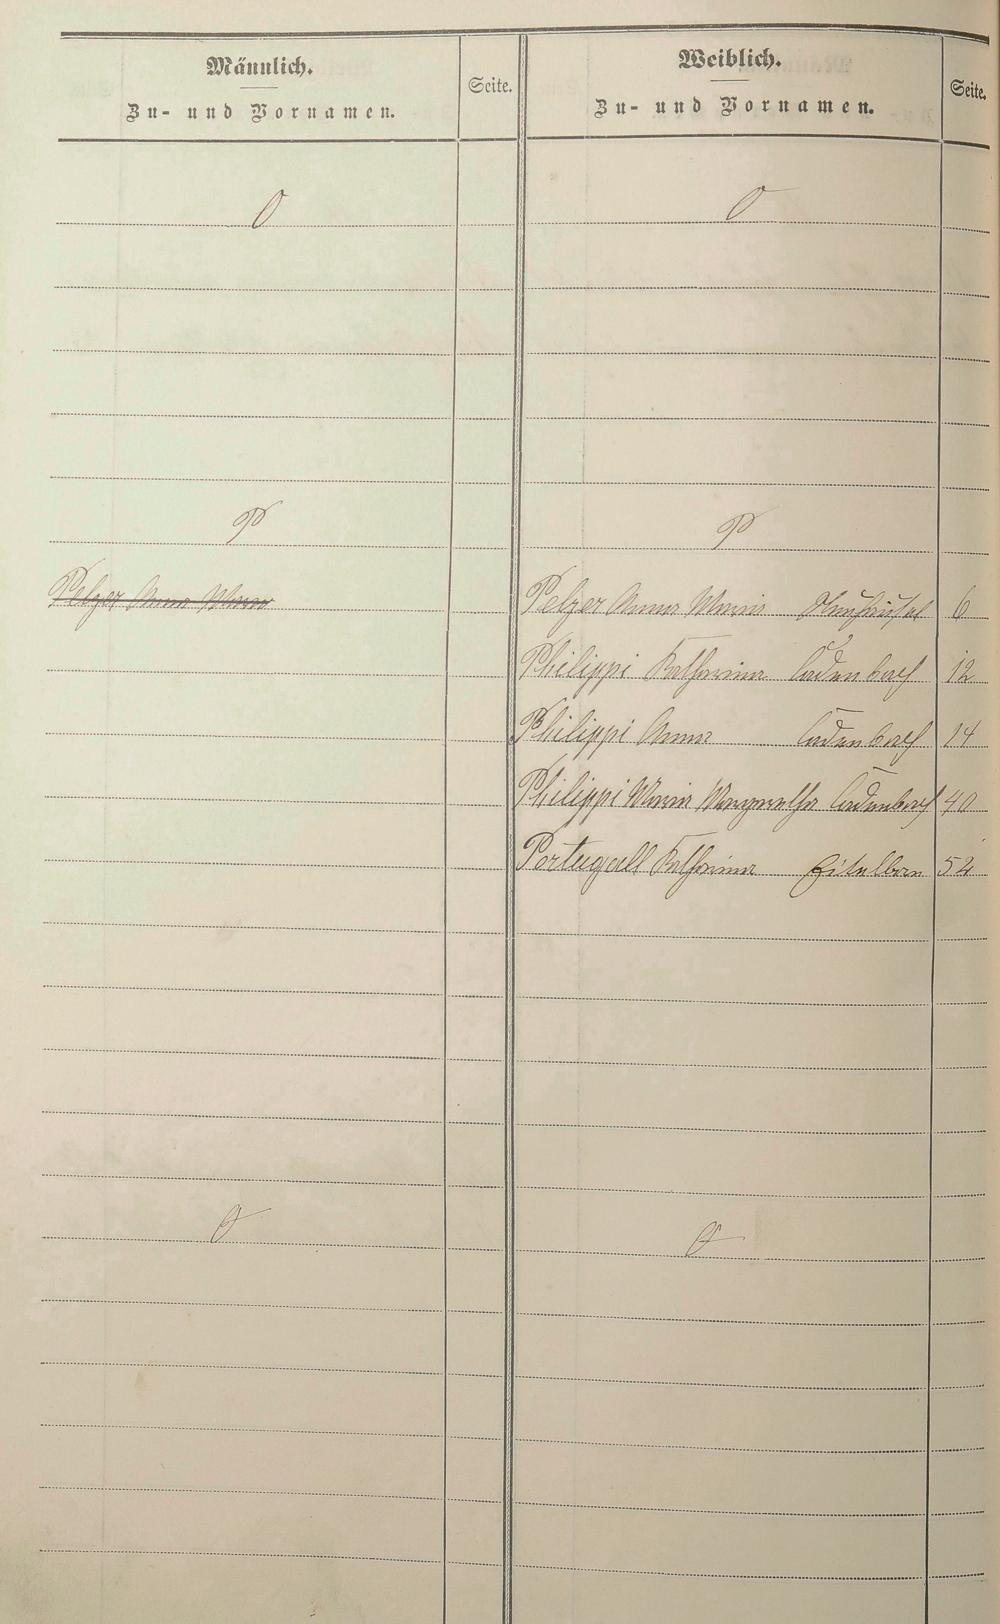 Männlich.
Zu- und Vornamen.
Seite.
Weiblich.
Zu- und Vornamen.
Seite.
O
O
P
P
Pelzer Anna Maria
Pelzer Anna Maria Neuhäusel 6
Philippi Katharina Cadenbach 12
Philippi Anna Cadenbach 14
Philippi Maria Margaretha Cadenbach 40
Portugall Katharina Eitelborn 52
Q
Q